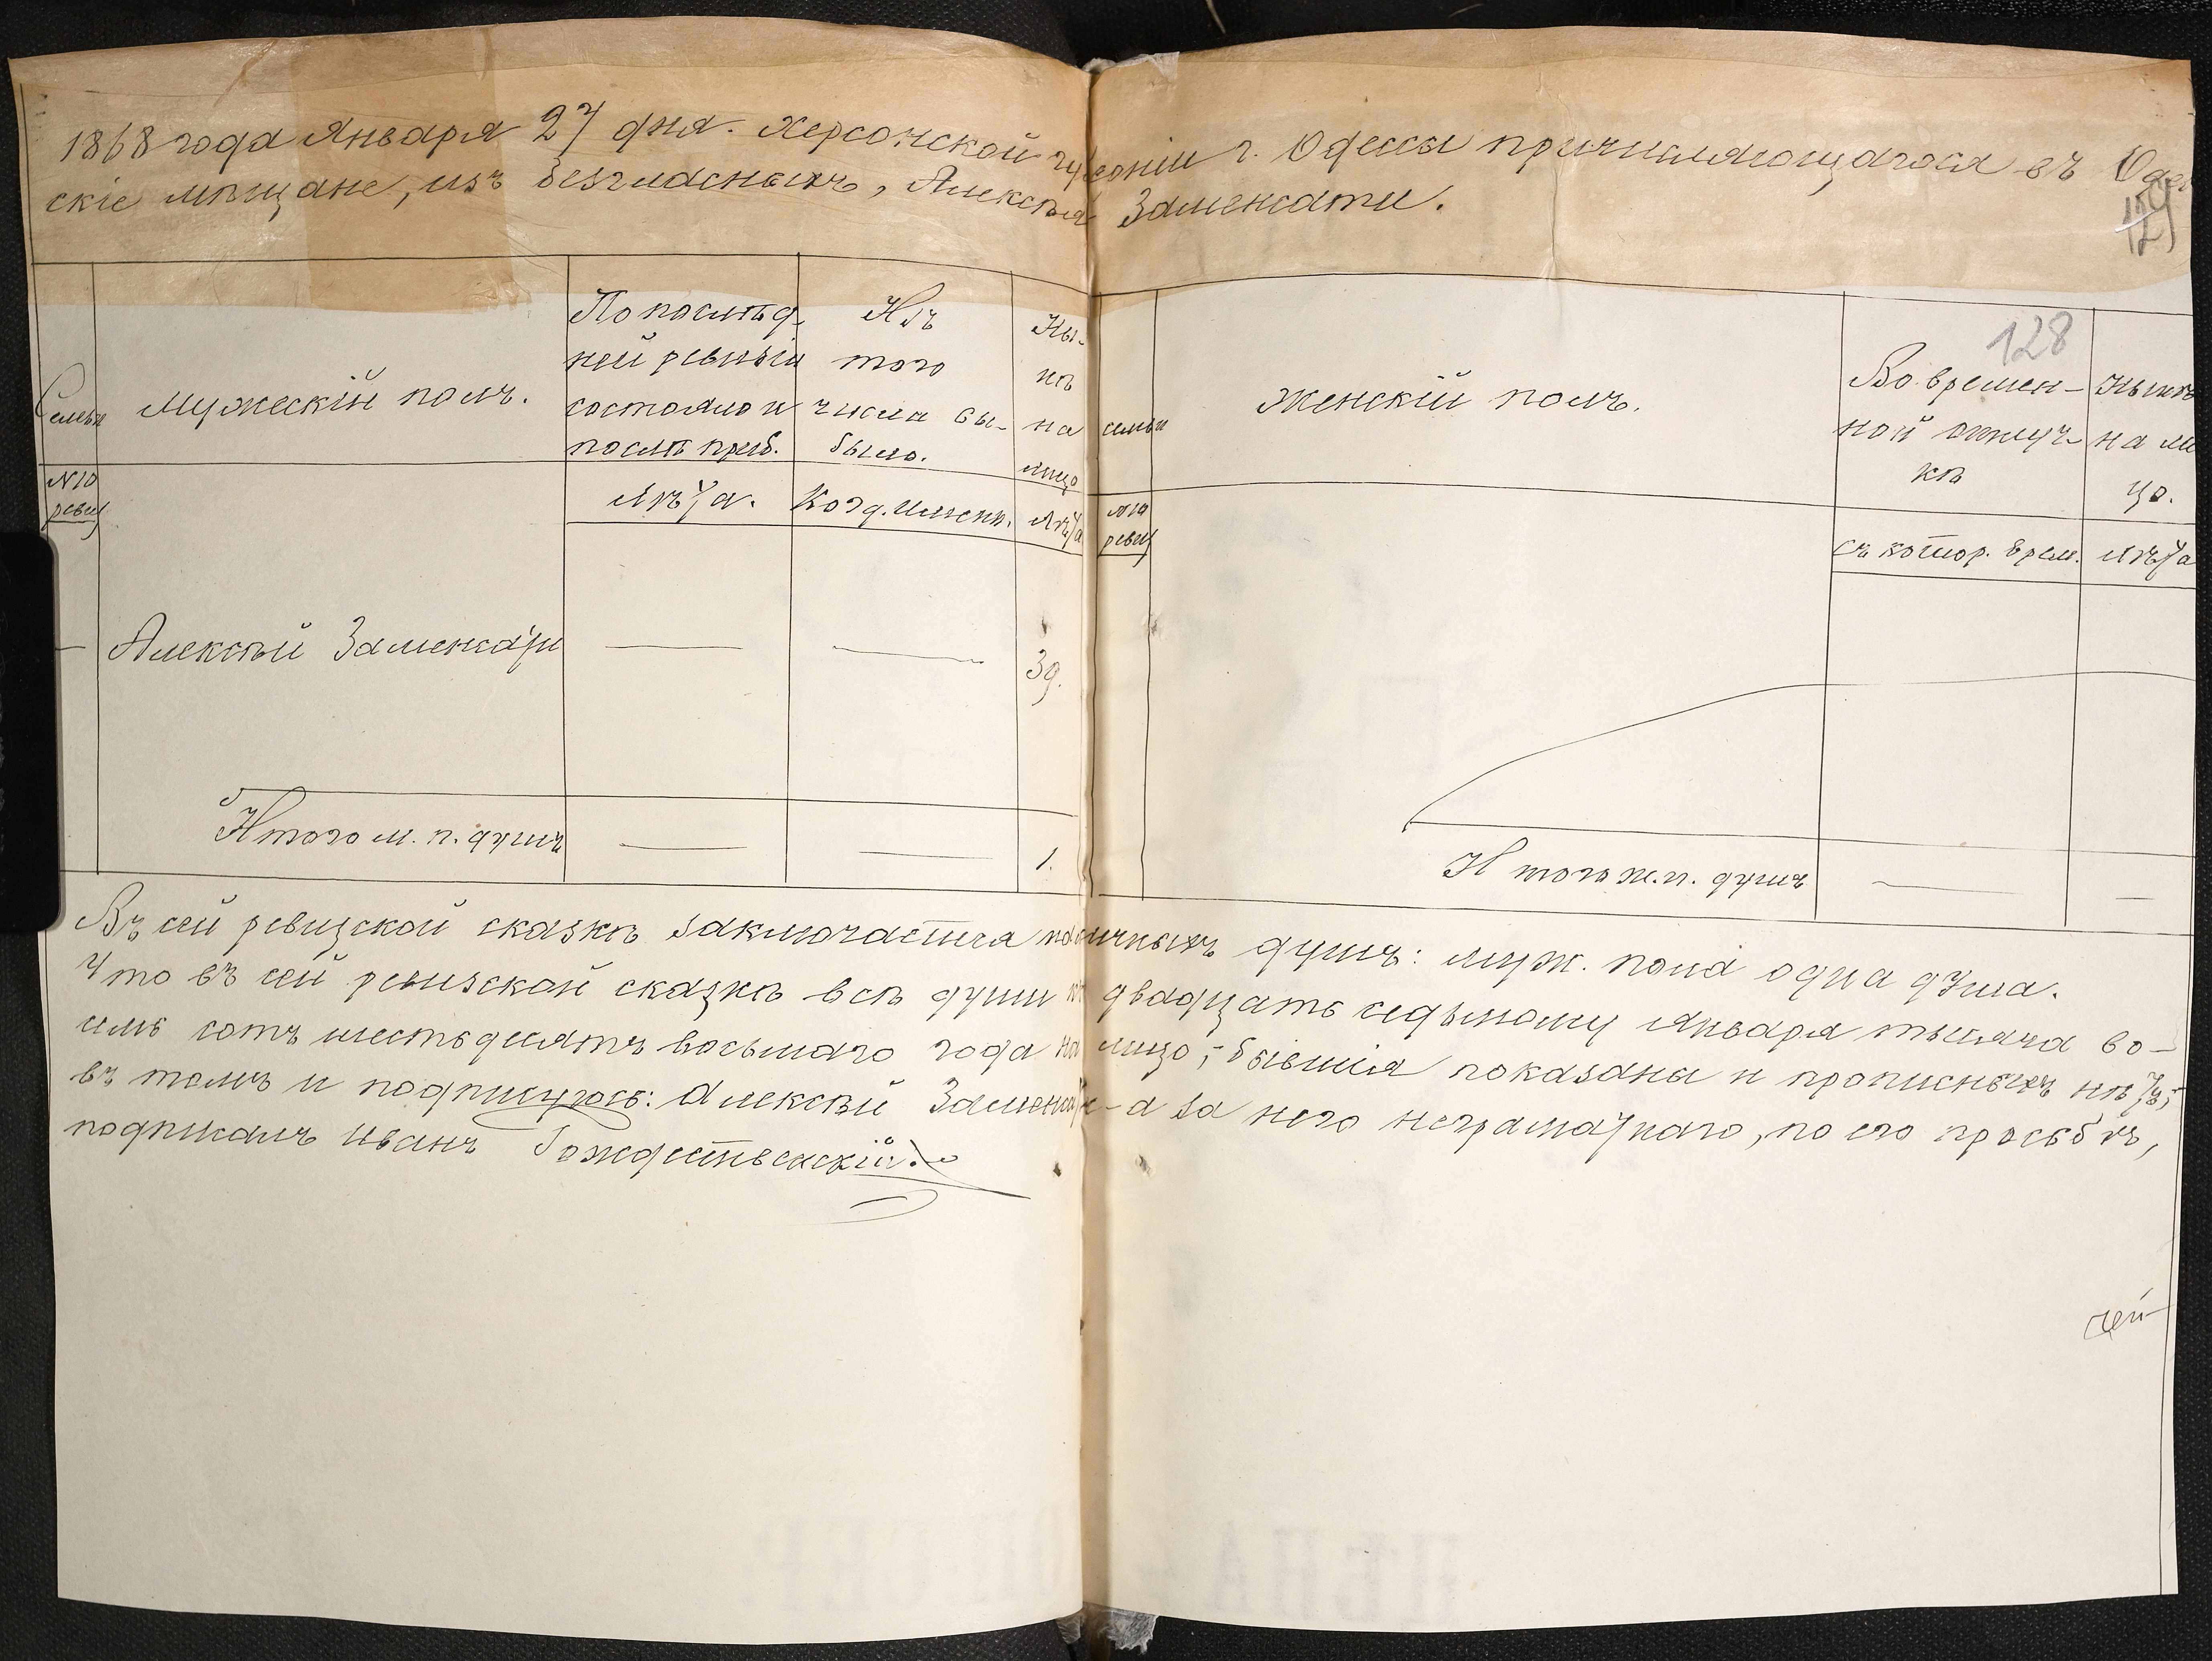 1868 года Января 27 дня. Херсонской губерніи г. Одессы причисляющагося въ Одес
скіе мѣщане, изъ безгласныхъ, Алексѣя Заменсати.
128
Семьи
N 10
ревиз
Мужескій полъ.
По послѣд-
ней ревизіи
состояло и
послѣ приб.
Лѣта.
Изъ
того
числа вы-
было.
Когд. именн.
Ны-
нѣ
на
лицо
Лѣта
семьи
N 10
ревиз
Женскій полъ.
Во времен-
ной отлуч-
кѣ
съ котор. врем.
Нынѣ
на ли
цо.
Лѣта
— Алексѣй Заменсати — — 39.
Итого м. п. душъ — — 1.
Итого ж. п. душъ — —
Въ сей ревизской сказкѣ заключается наличныхъ душъ: муж. пола одна душа.
Что въ сей ревизской сказкѣ всѣ души къ двадцать седьмому января тысяча во-
семь сотъ шестьдесятъ восьмаго года на лицо, бывшія показаны и прописныхъ нѣтъ,
въ томъ и подписуюсь: Алексѣй Заменсати - а за него неграматнаго, по его просьбѣ,
подписалъ Иванъ Рождественскій.